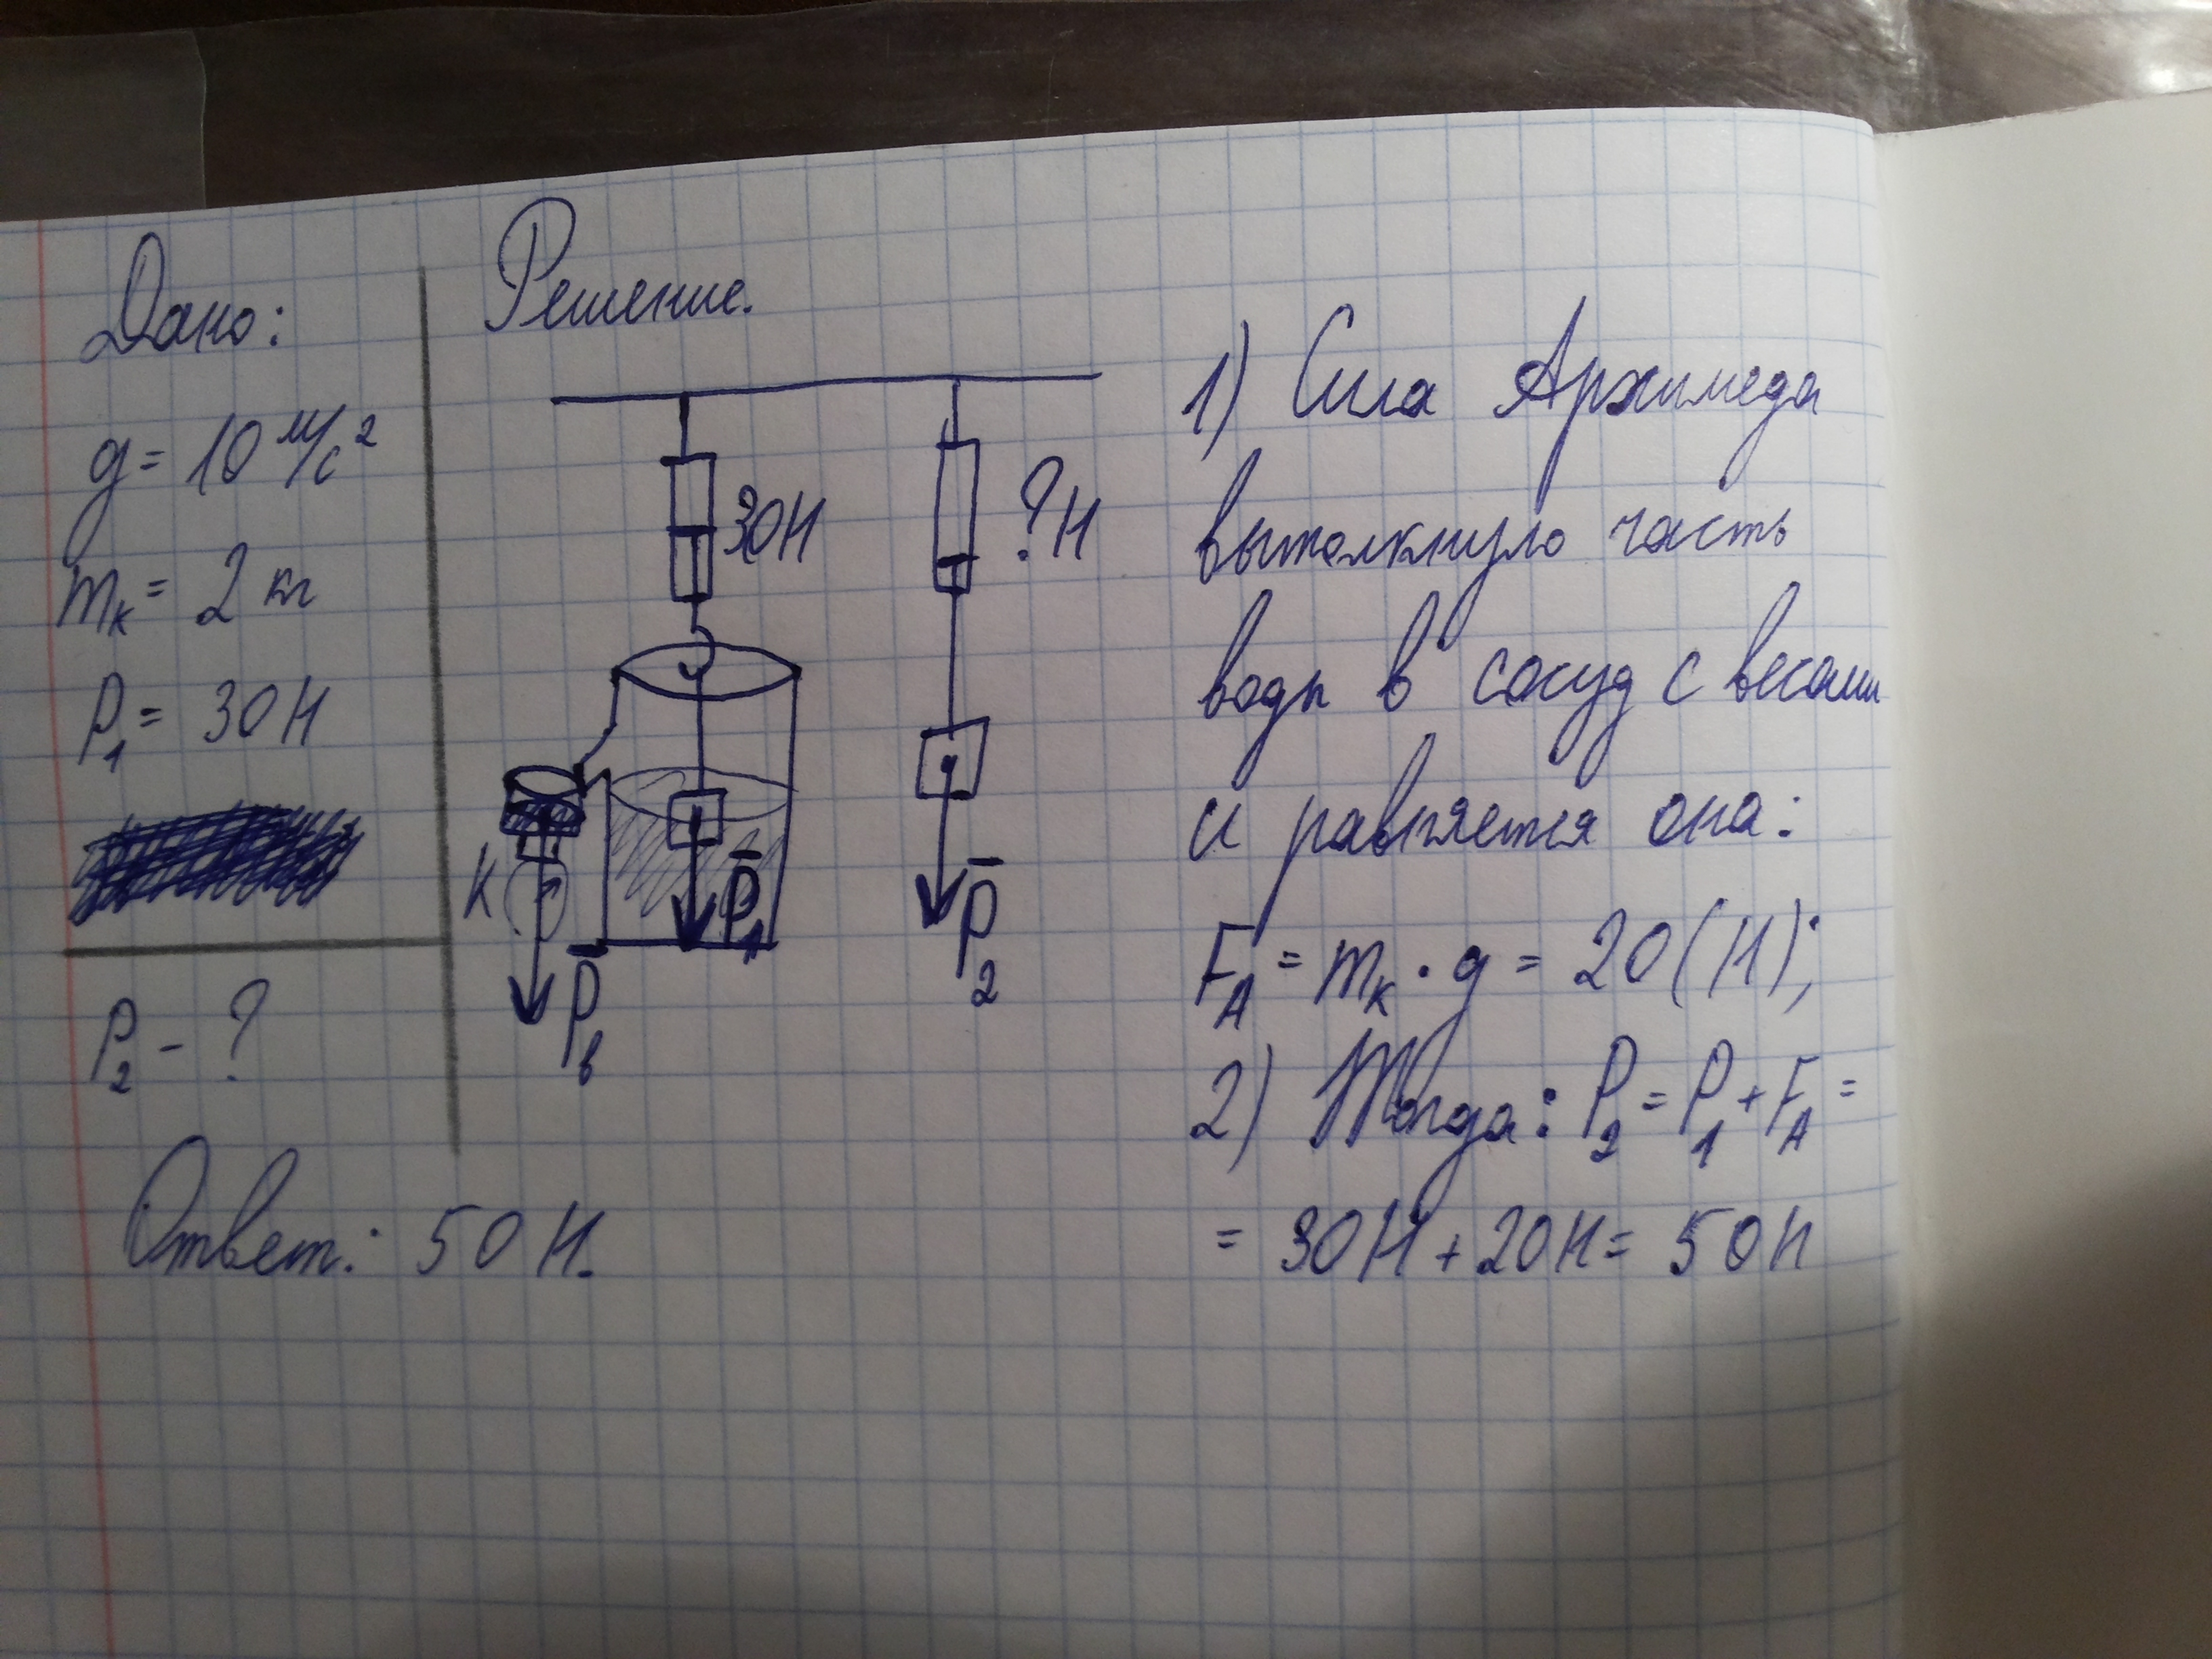 Дано:
g = 10 м/с²
mк = 2 кг
P₁ = 30 Н
P₂ - ?
Ответ: 50 Н.
Решение.
30Н
?Н
К
P̄в
P̄₁
P̄₂
1) Сила Архимеда
вытолкнуло часть
воды в сосуд с весами
и равняется она:
F_A = mк · g = 20 (Н);
2) Тогда: P₂ = P₁ + F_A =
= 30Н + 20Н = 50Н